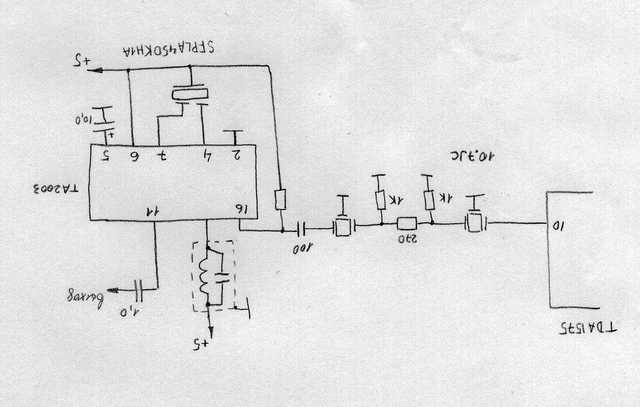 +5
TDA1575
1,0
выход
100
270
10
16
11
1K
1K
TA2003
10.7JC
2
4
7
6
5
+
10,0
+5
SFPLA450KH1A